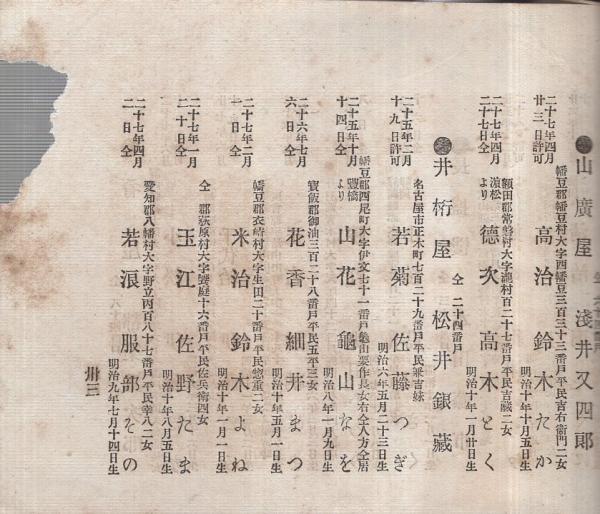 山廣屋 淺井又四郎
幡豆郡幡豆村大字西幡豆三百三十三番戸平民吉右衛門二女
二十七年四月
廿三日許可
高治 鈴木たか
明治十年十月五日生
額田郡常磐村大字瀧村百二十七番戸平民吉藏二女
二十七年四月
二十七日仝
濵松
より
徳次 高木とく
明治十年一月廿日生
井桁屋 仝二十四番戸 松井銀藏
名古屋市正木町七百二十九番戸平民兼吉妹
二十五年二月
十九日許可
若菊 佐藤つぎ
明治六年五月二十三日生
幡豆郡西尾町大字伊文七十一番戸龜山要作長女右仝人方仝居
二十五年十月
十四日仝
豐橋
より
山花 龜山なを
明治八年一月九日生
寳飯郡御油三百二十八番戸平民五平三女
二十六年七月
六日仝
花香 細井まつ
明治十年五月一日生
幡豆郡衣崎村大字生田二十番戸平民惣重二女
二十七年二月
一日仝
米治 鈴木よね
明治十年一月一日生
仝郡荻原村大字饗庭十六番戸平民佐兵衛四女
二十七年一月
二十日仝
玉江 佐野たま
明治十年八月五日生
愛知郡八幡村大字野立丙百八十七番戸平民幸八二女
二十七年二月
二日仝
若浪 服部その
明治九年七月十四日生
卅三